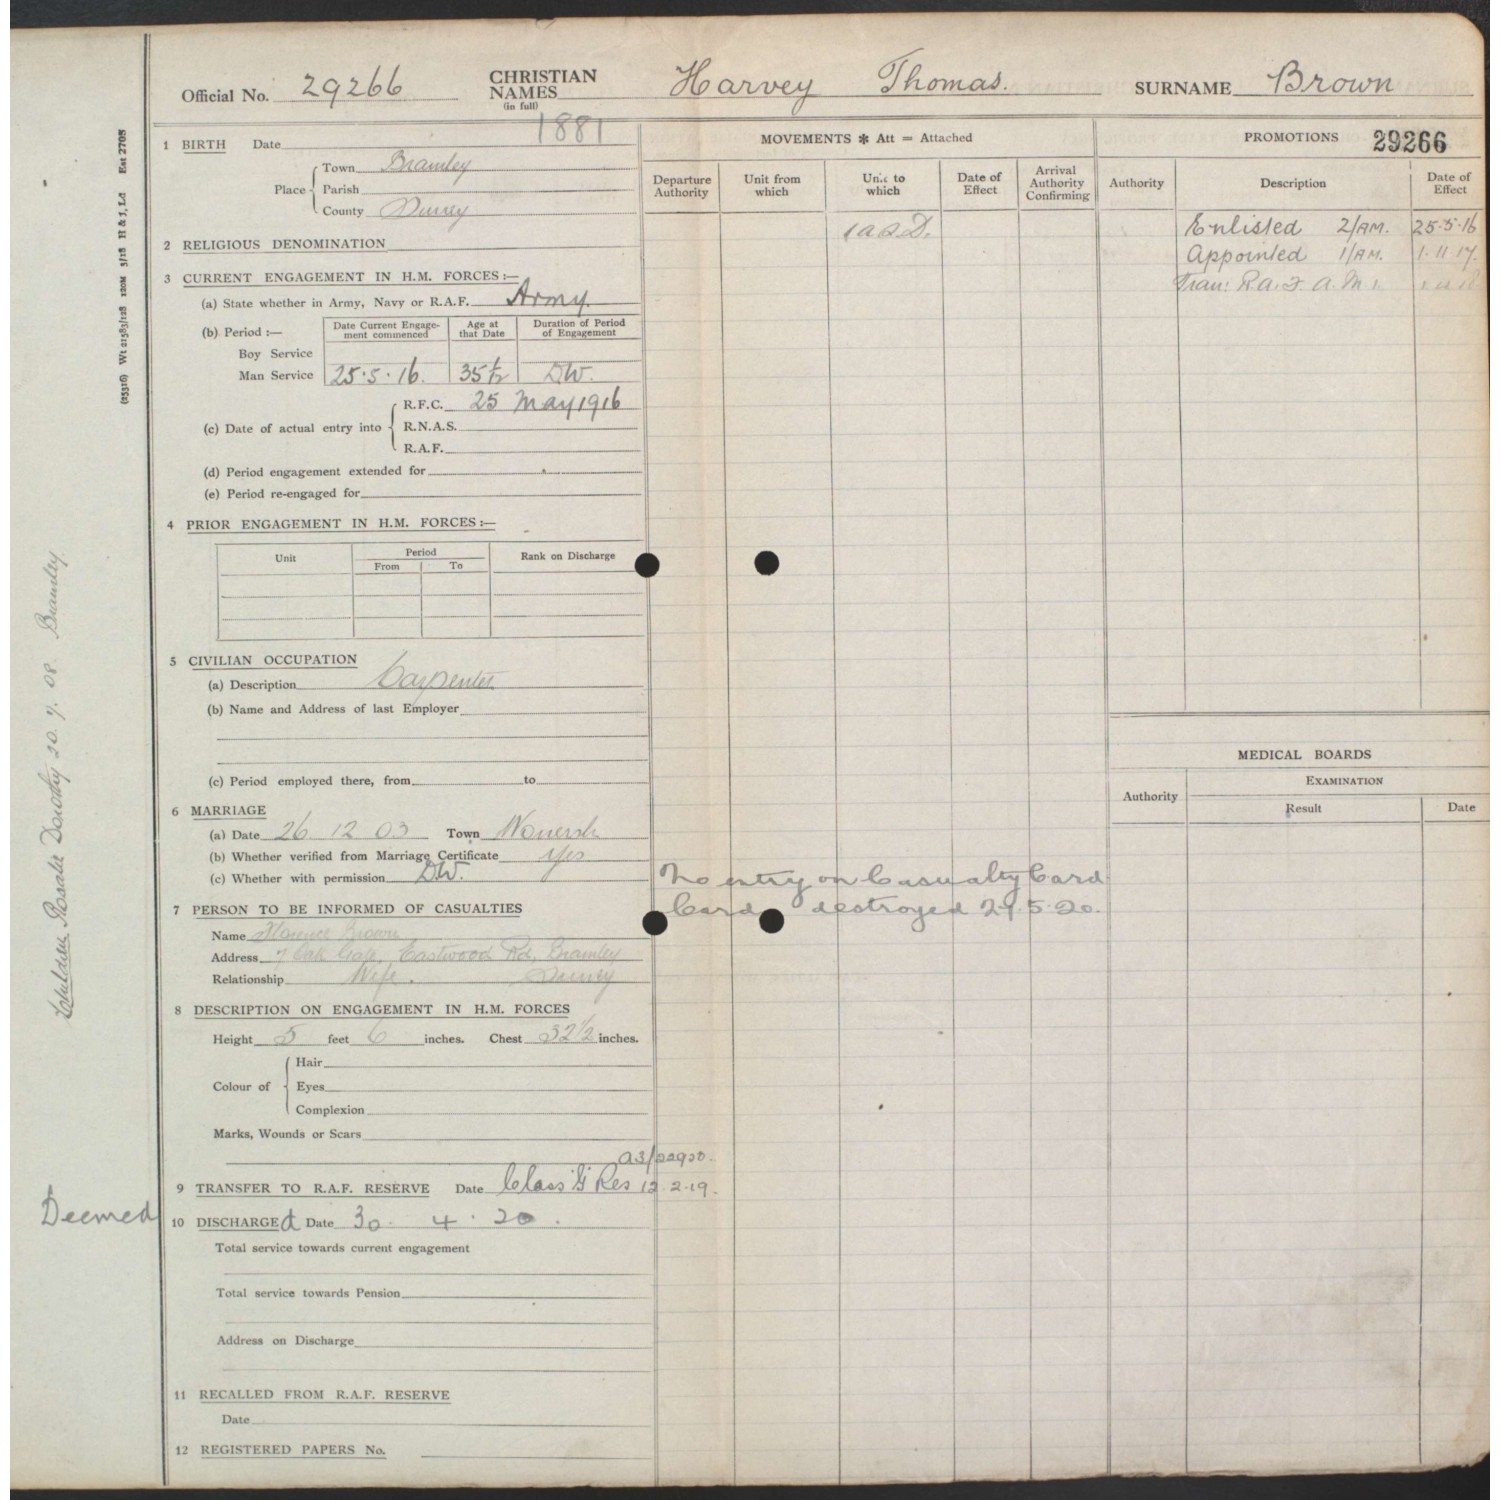 Official No. 29266 CHRISTIAN NAMES (in full) Harvey Thomas. SURNAME Brown
1 BIRTH Date 1881
Place Town Bramley
Parish
County Surrey
2 RELIGIOUS DENOMINATION
3 CURRENT ENGAGEMENT IN H.M. FORCES:—
(a) State whether in Army, Navy or R.A.F. Army.
(b) Period :— Date Current Engagement commenced Age at that Date Duration of Period of Engagement
Boy Service
Man Service 25.5.16. 35½ DW.
(c) Date of actual entry into R.F.C. 25 May 1916
R.N.A.S.
R.A.F.
(d) Period engagement extended for
(e) Period re-engaged for
4 PRIOR ENGAGEMENT IN H.M. FORCES:—
Unit Period Rank on Discharge
From To
5 CIVILIAN OCCUPATION
(a) Description Carpenter
(b) Name and Address of last Employer
(c) Period employed there, from to
6 MARRIAGE
(a) Date 26 12 03 Town Wonersh
(b) Whether verified from Marriage Certificate Yes
(c) Whether with permission DW.
7 PERSON TO BE INFORMED OF CASUALTIES
Name Florence Brown
Address Eastwood Rd, Bramley
Relationship Wife. Surrey
8 DESCRIPTION ON ENGAGEMENT IN H.M. FORCES
Height 5 feet 6 inches. Chest 32½ inches.
Colour of Hair
Eyes
Complexion
Marks, Wounds or Scars
9 TRANSFER TO R.A.F. RESERVE Date Class 'G' Res 12.2.19.
Deemed 10 DISCHARGEd Date 30. 4. 20.
Total service towards current engagement
Total service towards Pension
Address on Discharge
11 RECALLED FROM R.A.F. RESERVE
Date
12 REGISTERED PAPERS No.
MOVEMENTS * Att = Attached
Departure Authority Unit from which Unit to which Date of Effect Arrival Authority Confirming
1 A.S.D.
No entry on Casualty Card
Card destroyed 29.5.20.
PROMOTIONS 29266
Authority Description Date of Effect
Enlisted 2/AM. 25.5.16
Appointed 1/AM. 1.11.17.
Tran: R.A.F. A.M.1.
MEDICAL BOARDS
Authority EXAMINATION
Result Date
Children Rosalie Dorothy 20.7.08. Bramley